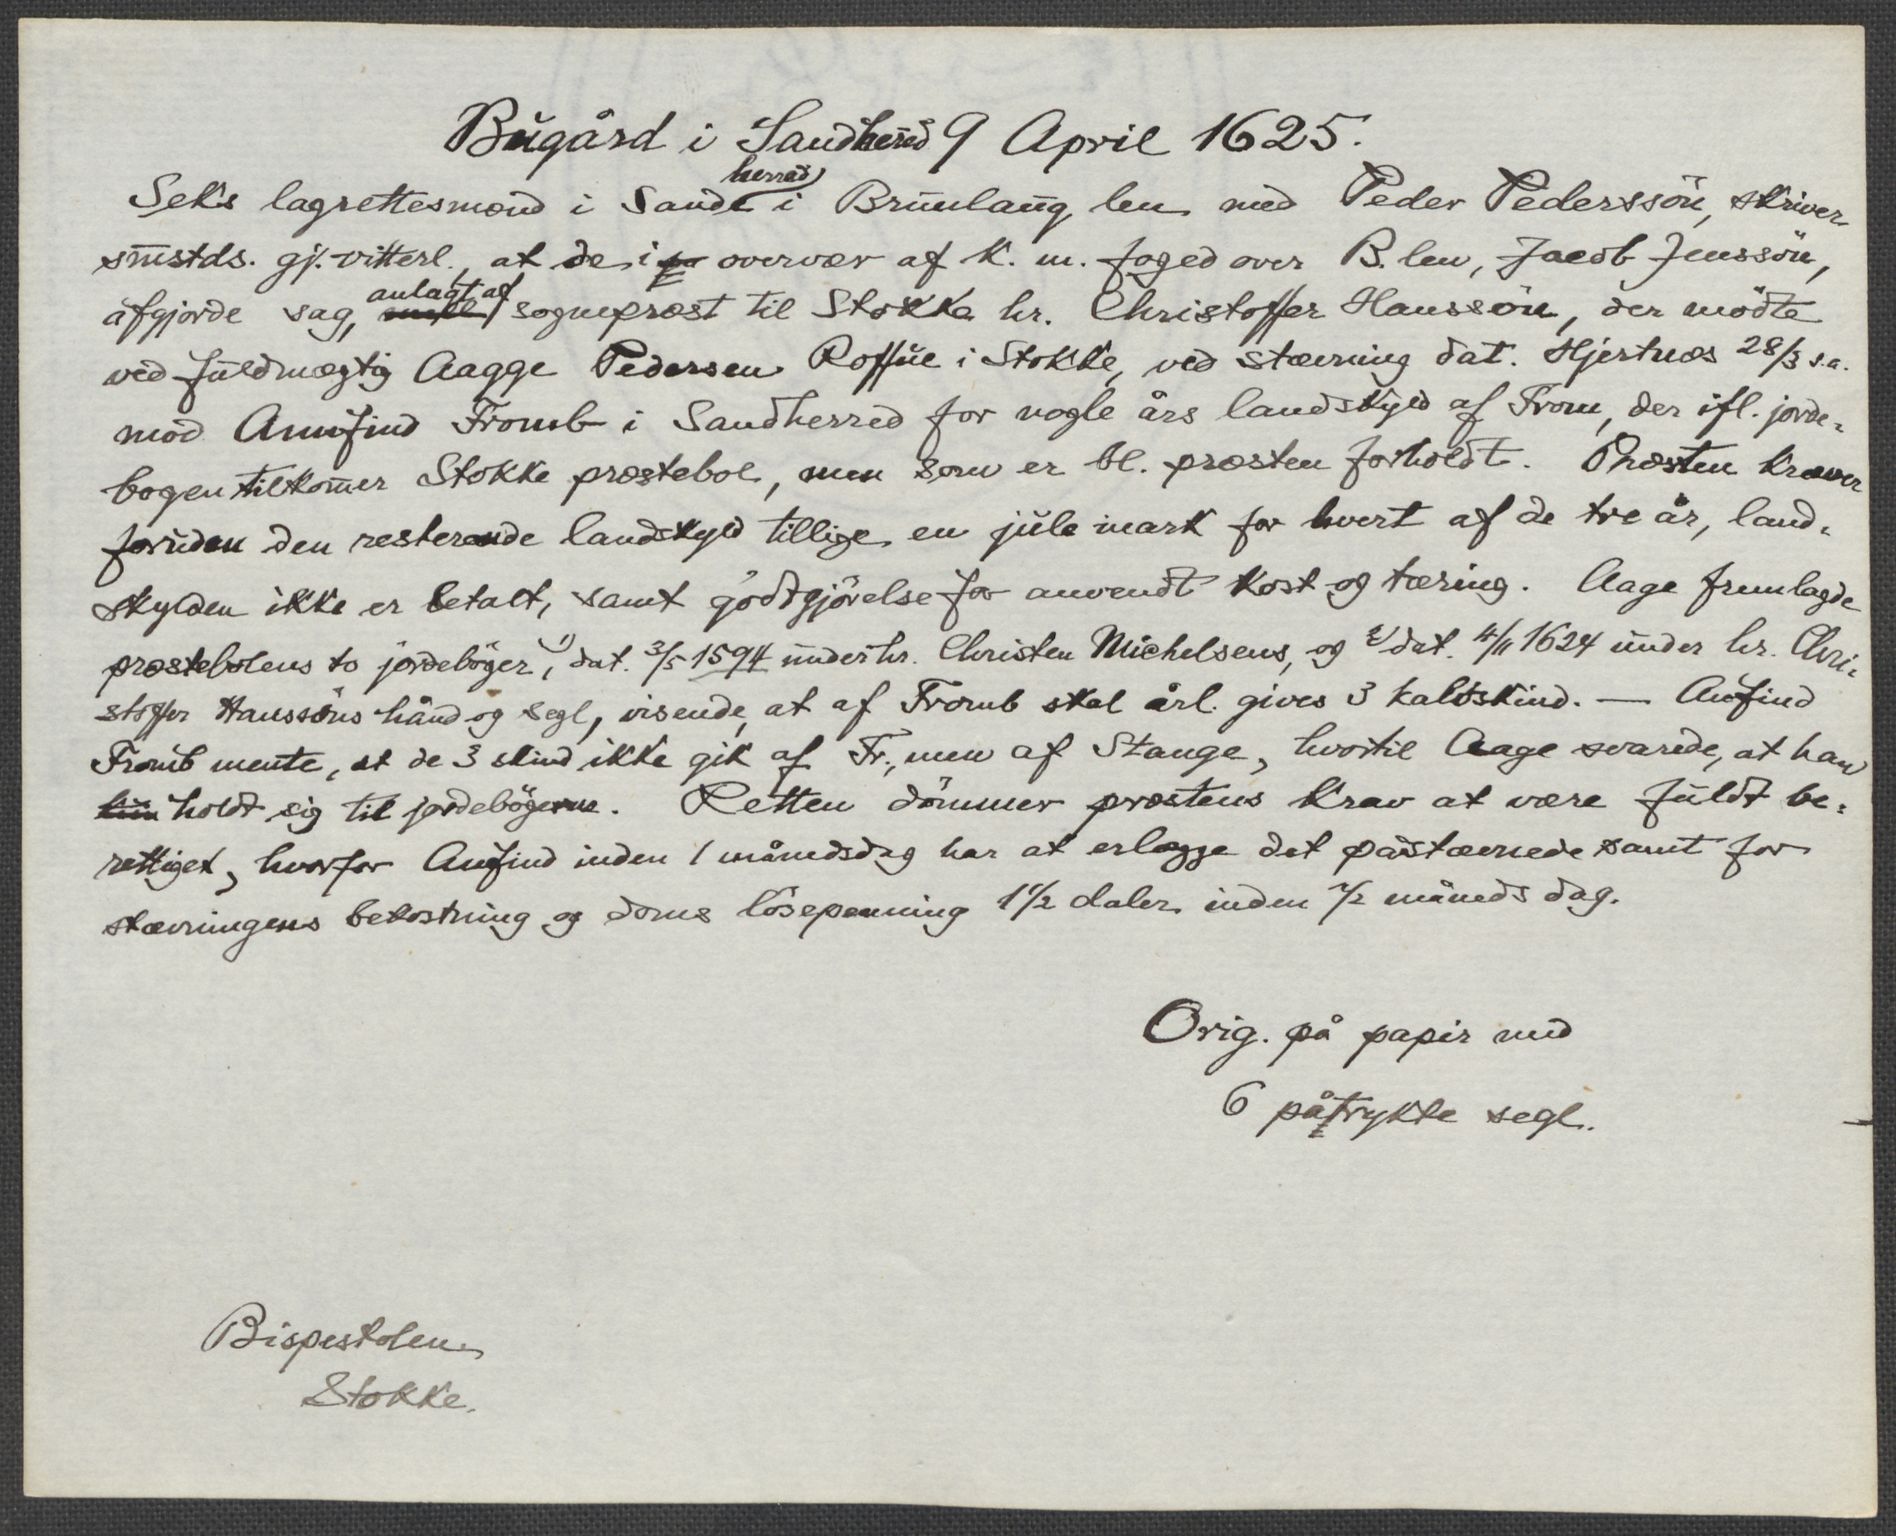 Bugård i Sandherred 9 April 1625.
Seks lagrettesmænd i Sandeherred i Brunlaug len med Peder Pederssön, skriver
smstds. gj. vitterl., at de i overvær af k. m. foged over B. len, Jacob Jenssön,
afgjorde sag, anlagt af sogneprest til Stokke hr. Christoffer Hanssön, der mödte
ved fuldmægtig Aagge Pedersen Roffue i Stokke, ved stævning dat. Hjertnes 28/3 s.a.
mod Anufind Fromb i Sandherred for nogle års landskyld af From, der ifl. jorde-
bogen tilkommer Stokke prestebol, men som er bl. presten forholdt. Presten kræver
foruden den resterende landskyld tillige en julemark for hvert af de tre år, land-
skylden ikke er betalt, samt godtgjörelse for anvendt kost og tæring. Aage fremlagde
prestebolens to jordeböger, 1) dat. 3/5 1594 under hr. Christen Michelsens, og 2) dat. 4/11 1624 under hr. Chri-
stoffer Hanssöns hånd og segl, visende, at af Fromb skal årl. gives 3 kalvskind. — Anfind
Fromb mente, at de 3 skind ikke gik af Fr., men af Stange, hvortil Aage svarede, at han
holdt sig til jordebögerne. Retten dömmer prestens krav at være fuldt be-
rettiget, hvorfor Anfind inden 1 månedsdag har at erlægge det påstævnede samt for
stævningens bekostning og doms lösepenning 1 1/2 daler inden 1/2 måneds dag.
Orig. på papir med
6 påtrykte segl.
Bispestolen
Stokke.